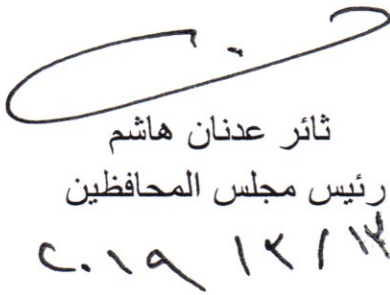 ثائر عدنان هاشم
رئيس مجلس المحافظين
٢٠١٩ / ١٢ / ١٢